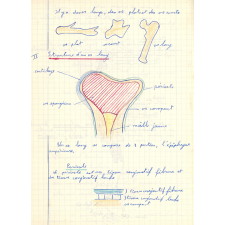 Il y a des os longs, des os plats et des os courts
os plat
os court
os long
II Structure d'un os long
cartilage
périoste
os spongieux
os compact
moelle jaune
Un os long se compose de 3 parties, l'épiphyse
Périoste
le périoste est un tissu conjonctif fibreux
tissu conjonctif fibreux
os compact